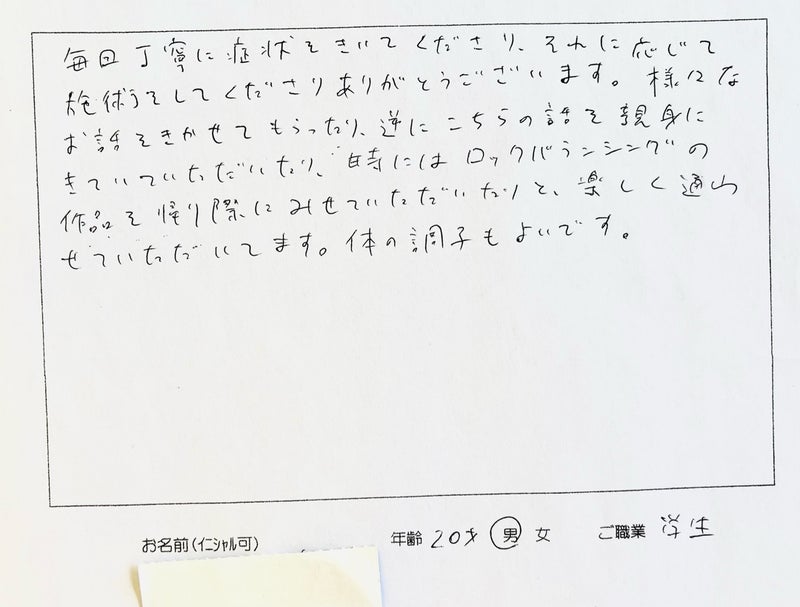 毎回丁寧に症状をきいてくださり、それに応じて
施術をしてくださりありがとうございます。様々な
お話をきかせてもらったり、逆にこちらの話を親身に
きいていただいたり、時にはロックバランシングの
作品を帰り際にみせていただいたりと、楽しく通わ
せていただいてます。体の調子もよいです。
お名前(イニシャル可) 年齢 20才 男 女 ご職業 学生